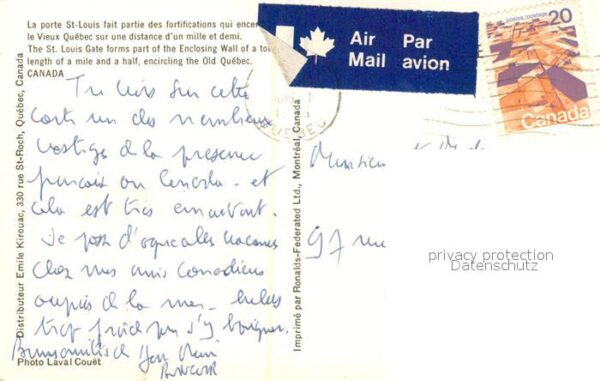 La porte St-Louis fait partie des fortifications qui encer
le Vieux Québec sur une distance d'un mille et demi.
The St. Louis Gate forms part of the Enclosing Wall of a to
length of a mile and a half, encircling the Old Québec.
CANADA
Air Par
Mail avion
postes/postage 20
Canada
QUEBEC
Tu vois sur cette
carte un des nombreux
vestiges de la présence
française au Canada - et
cela est très émouvant.
Je passe d'agréables vacances
chez mes amis Canadiens
auprès de la mer - hélas
trop froide pour s'y baigner.
Monsieur
97 rue
Distributeur Emile Kirouac, 330 rue St-Roch, Québec, Canada
Imprimé par Ronalds-Federated Ltd., Montréal, Canada
Photo Laval Couët
privacy protection
Datenschutz